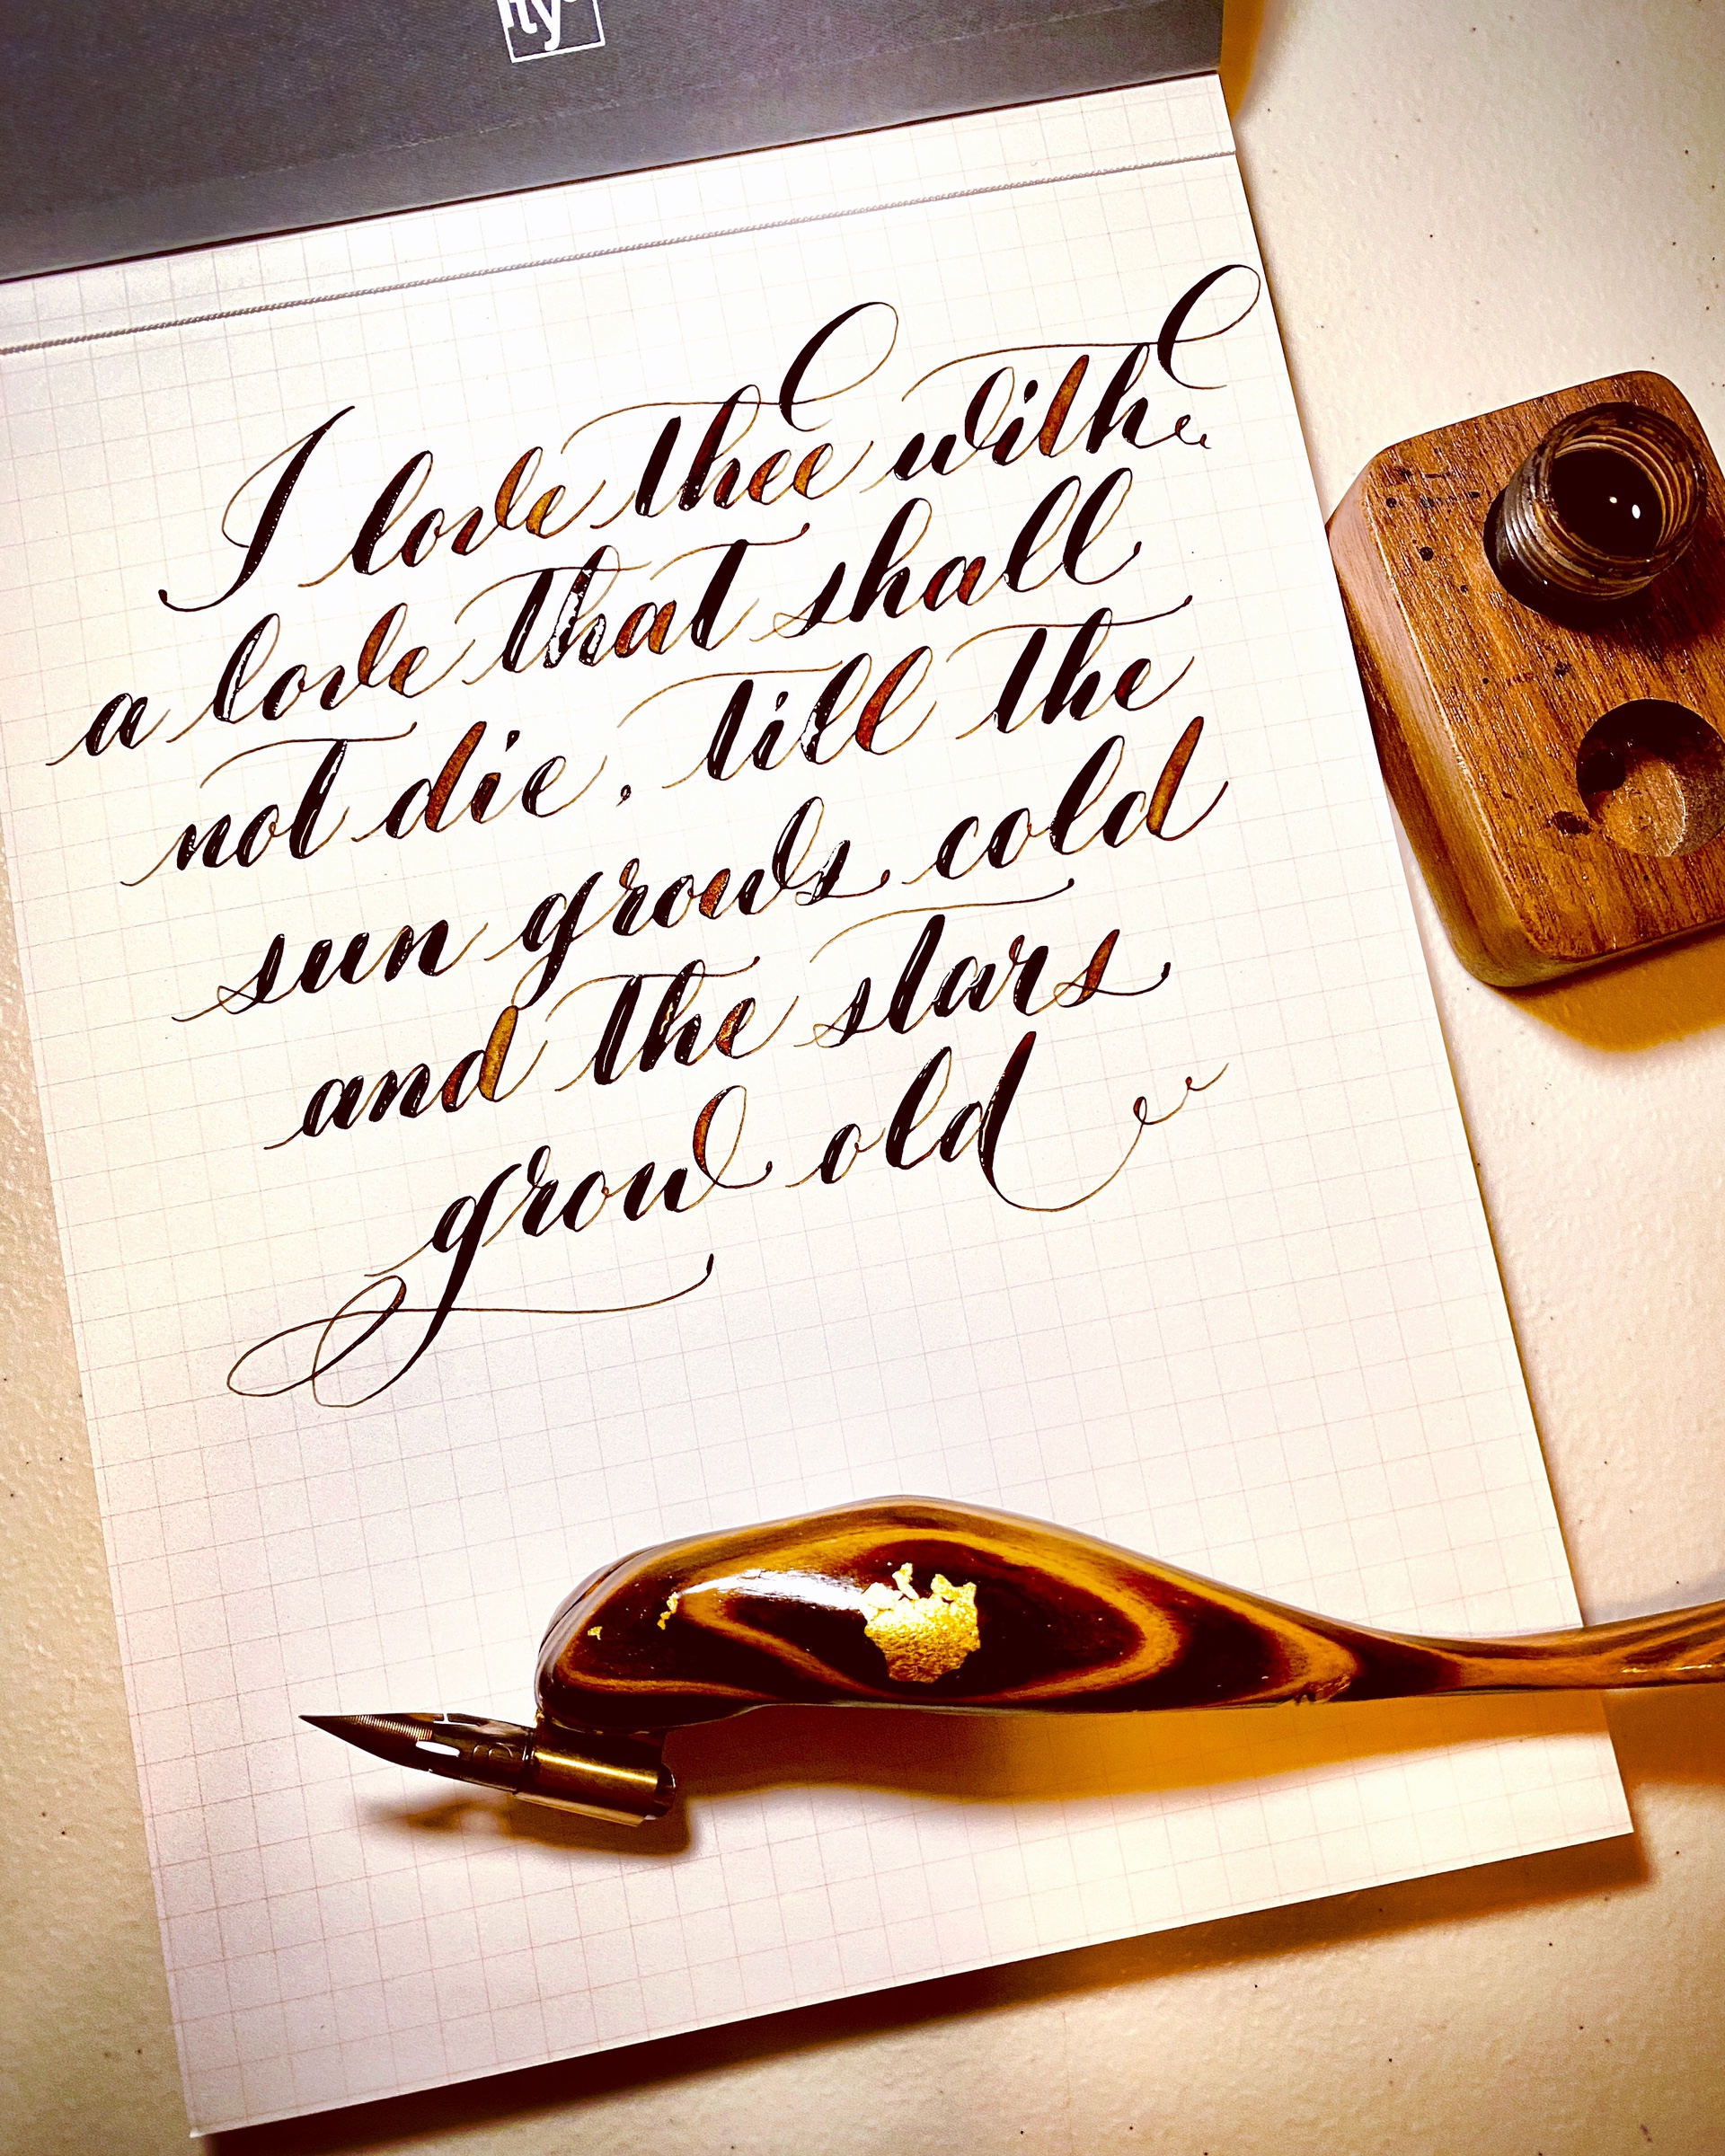 ity
I love thee with
a love that shall
not die, till the
sun grows cold
and the stars
grow old